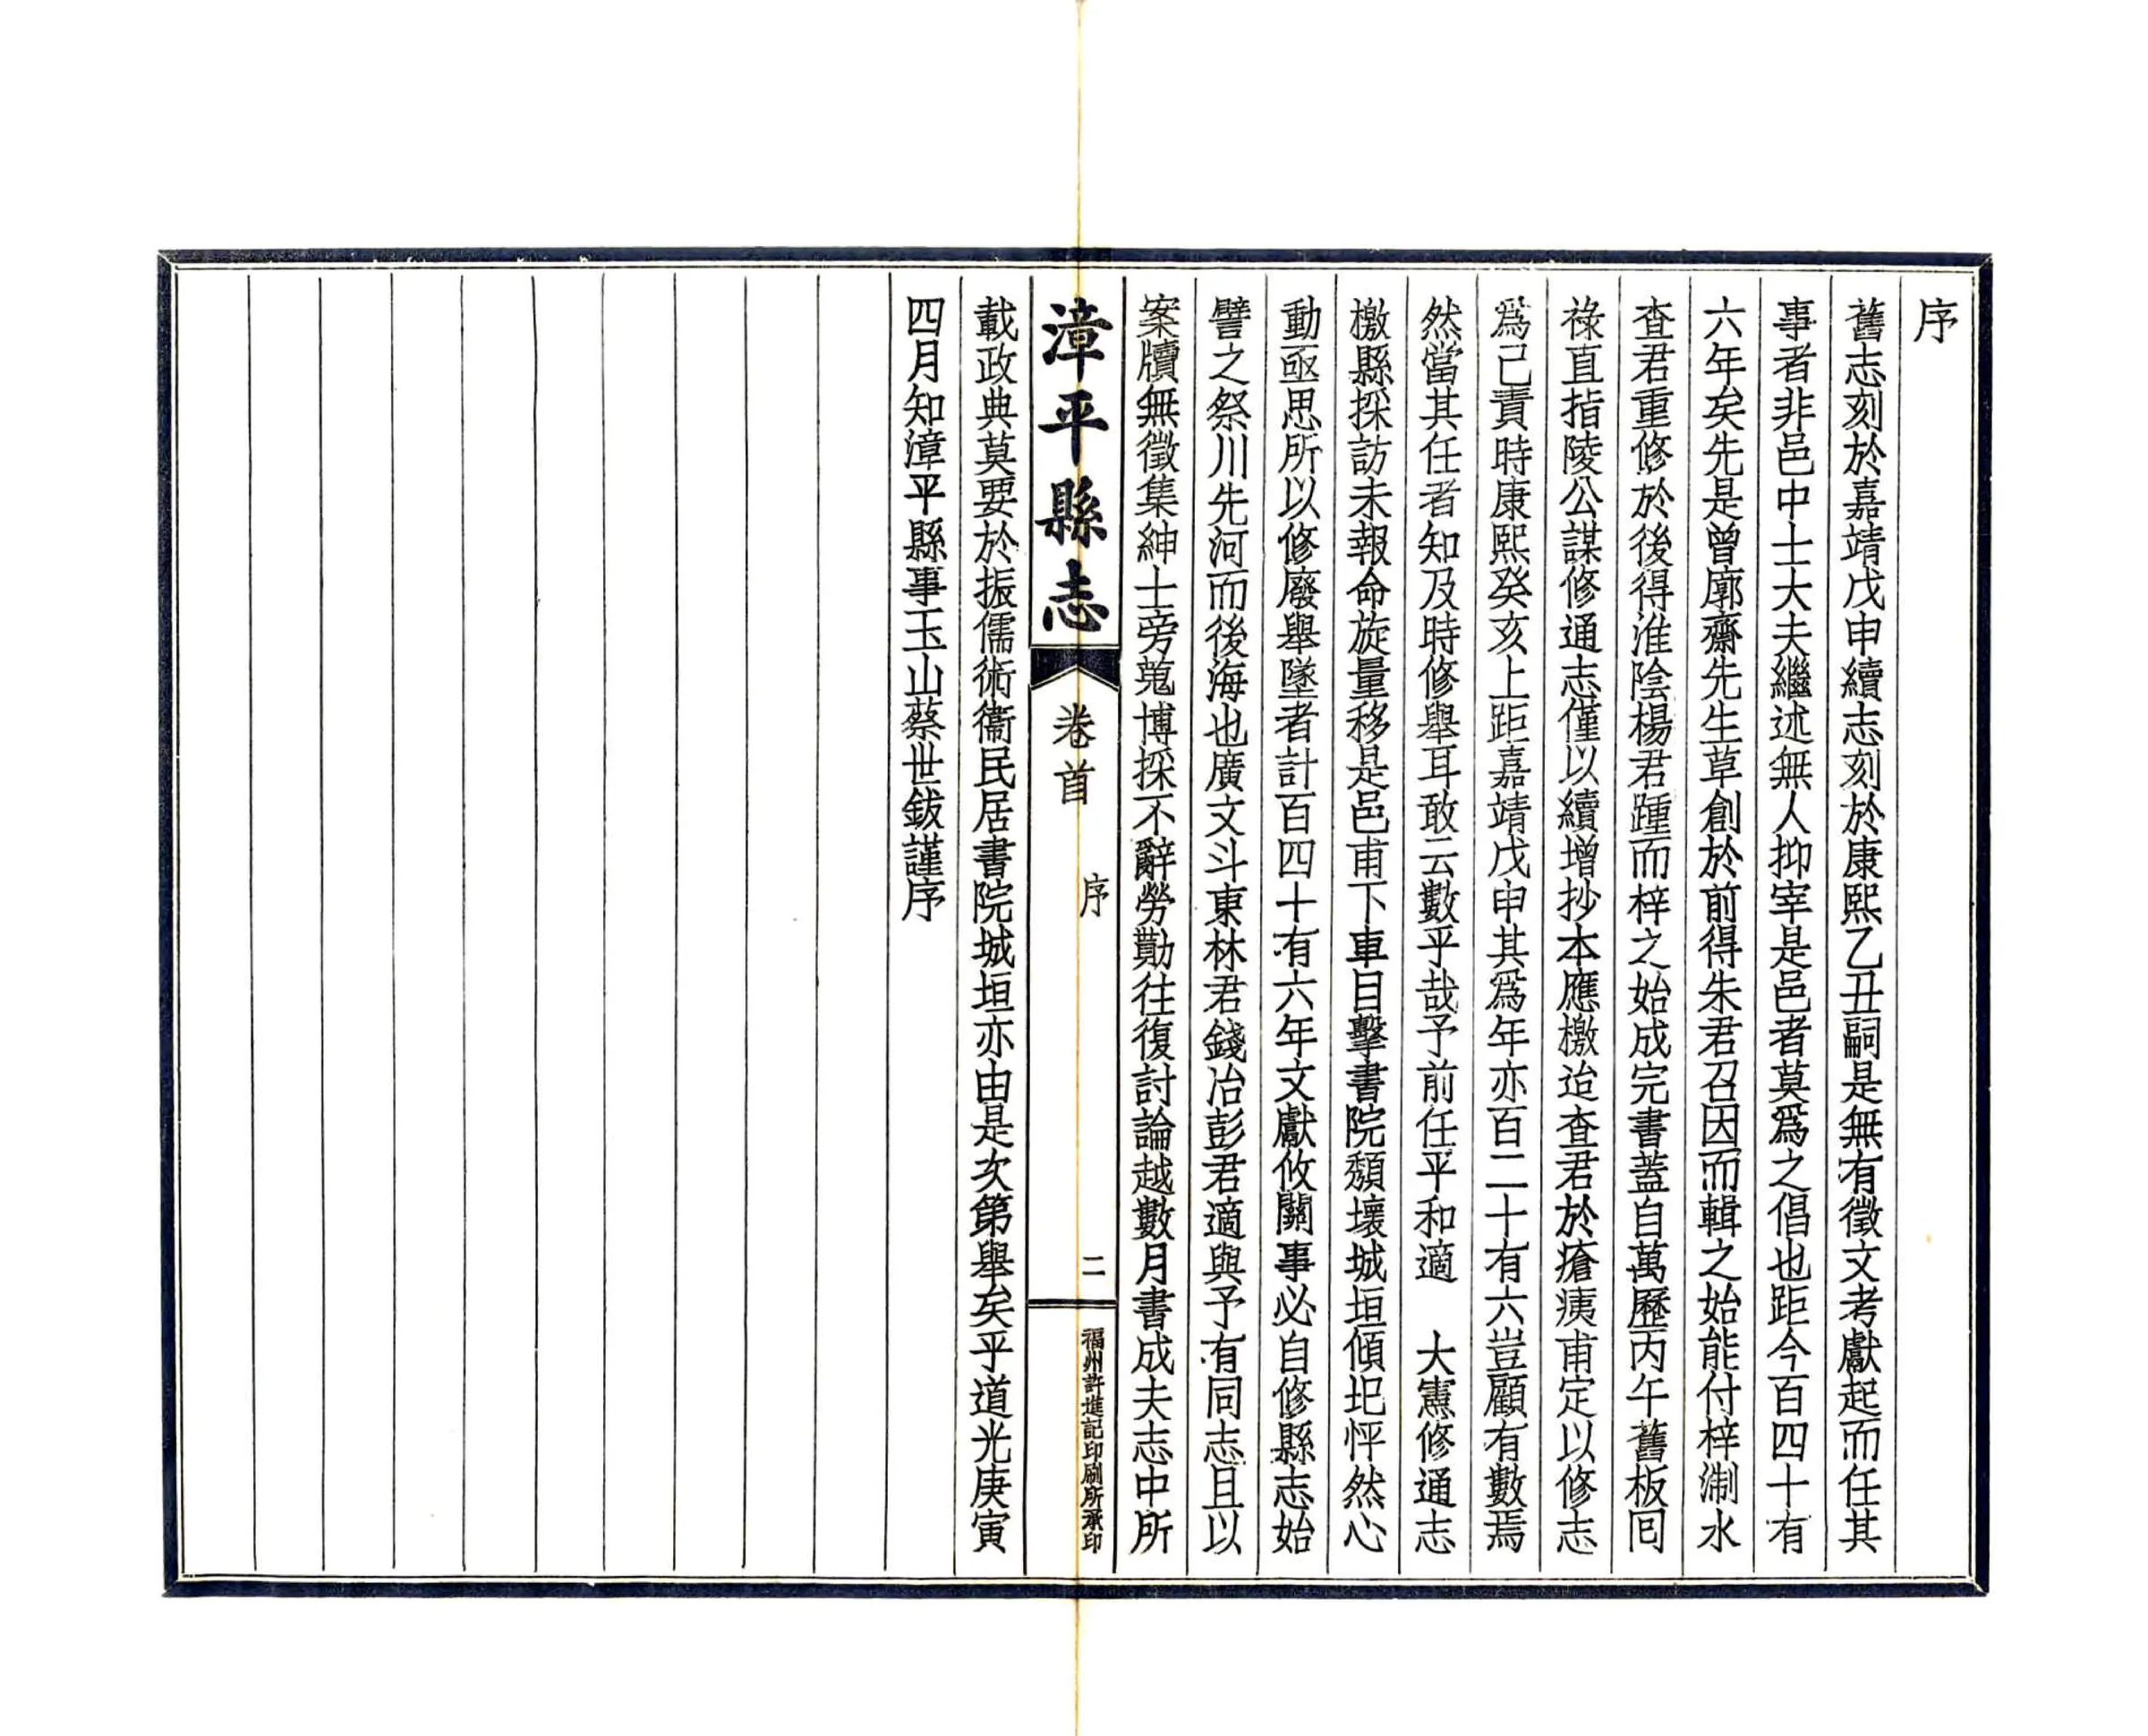 序
舊志刻於嘉靖戊申續志刻於康熙乙丑嗣是無有徵文考獻起而任其
事者非邑中士大夫繼述無人抑宰是邑者莫爲之倡也距今百四十有
六年矣先是曾廓齋先生草創於前得朱君召因而輯之始能付梓淛水
查君重修於後得淮陰楊君踵而梓之始成完書蓋自萬歷丙午舊板囘
祿直指陵公謀修通志僅以續增抄本應檄迨查君於瘡痍甫定以修志
爲己責時康熙癸亥上距嘉靖戊申其爲年亦百二十有六豈顧有數焉
然當其任者知及時修舉耳敢云數乎哉予前任平和適　大憲修通志
檄縣採訪未報命旋量移是邑甫下車目擊書院頽壞城垣傾圯怦然心
動亟思所以修廢舉墜者計百四十有六年文獻攸關事必自修縣志始
譬之祭川先河而後海也廣文斗東林君錢冶彭君適與予有同志且以
案牘無徵集紳士旁蒐博採不辭勞勩往復討論越數月書成夫志中所
漳平縣志
卷首
序
二
福州許進記印刷所承印
載政典莫要於振儒術衞民居書院城垣亦由是次第舉矣乎道光庚寅
四月知漳平縣事玉山蔡世鈸謹序